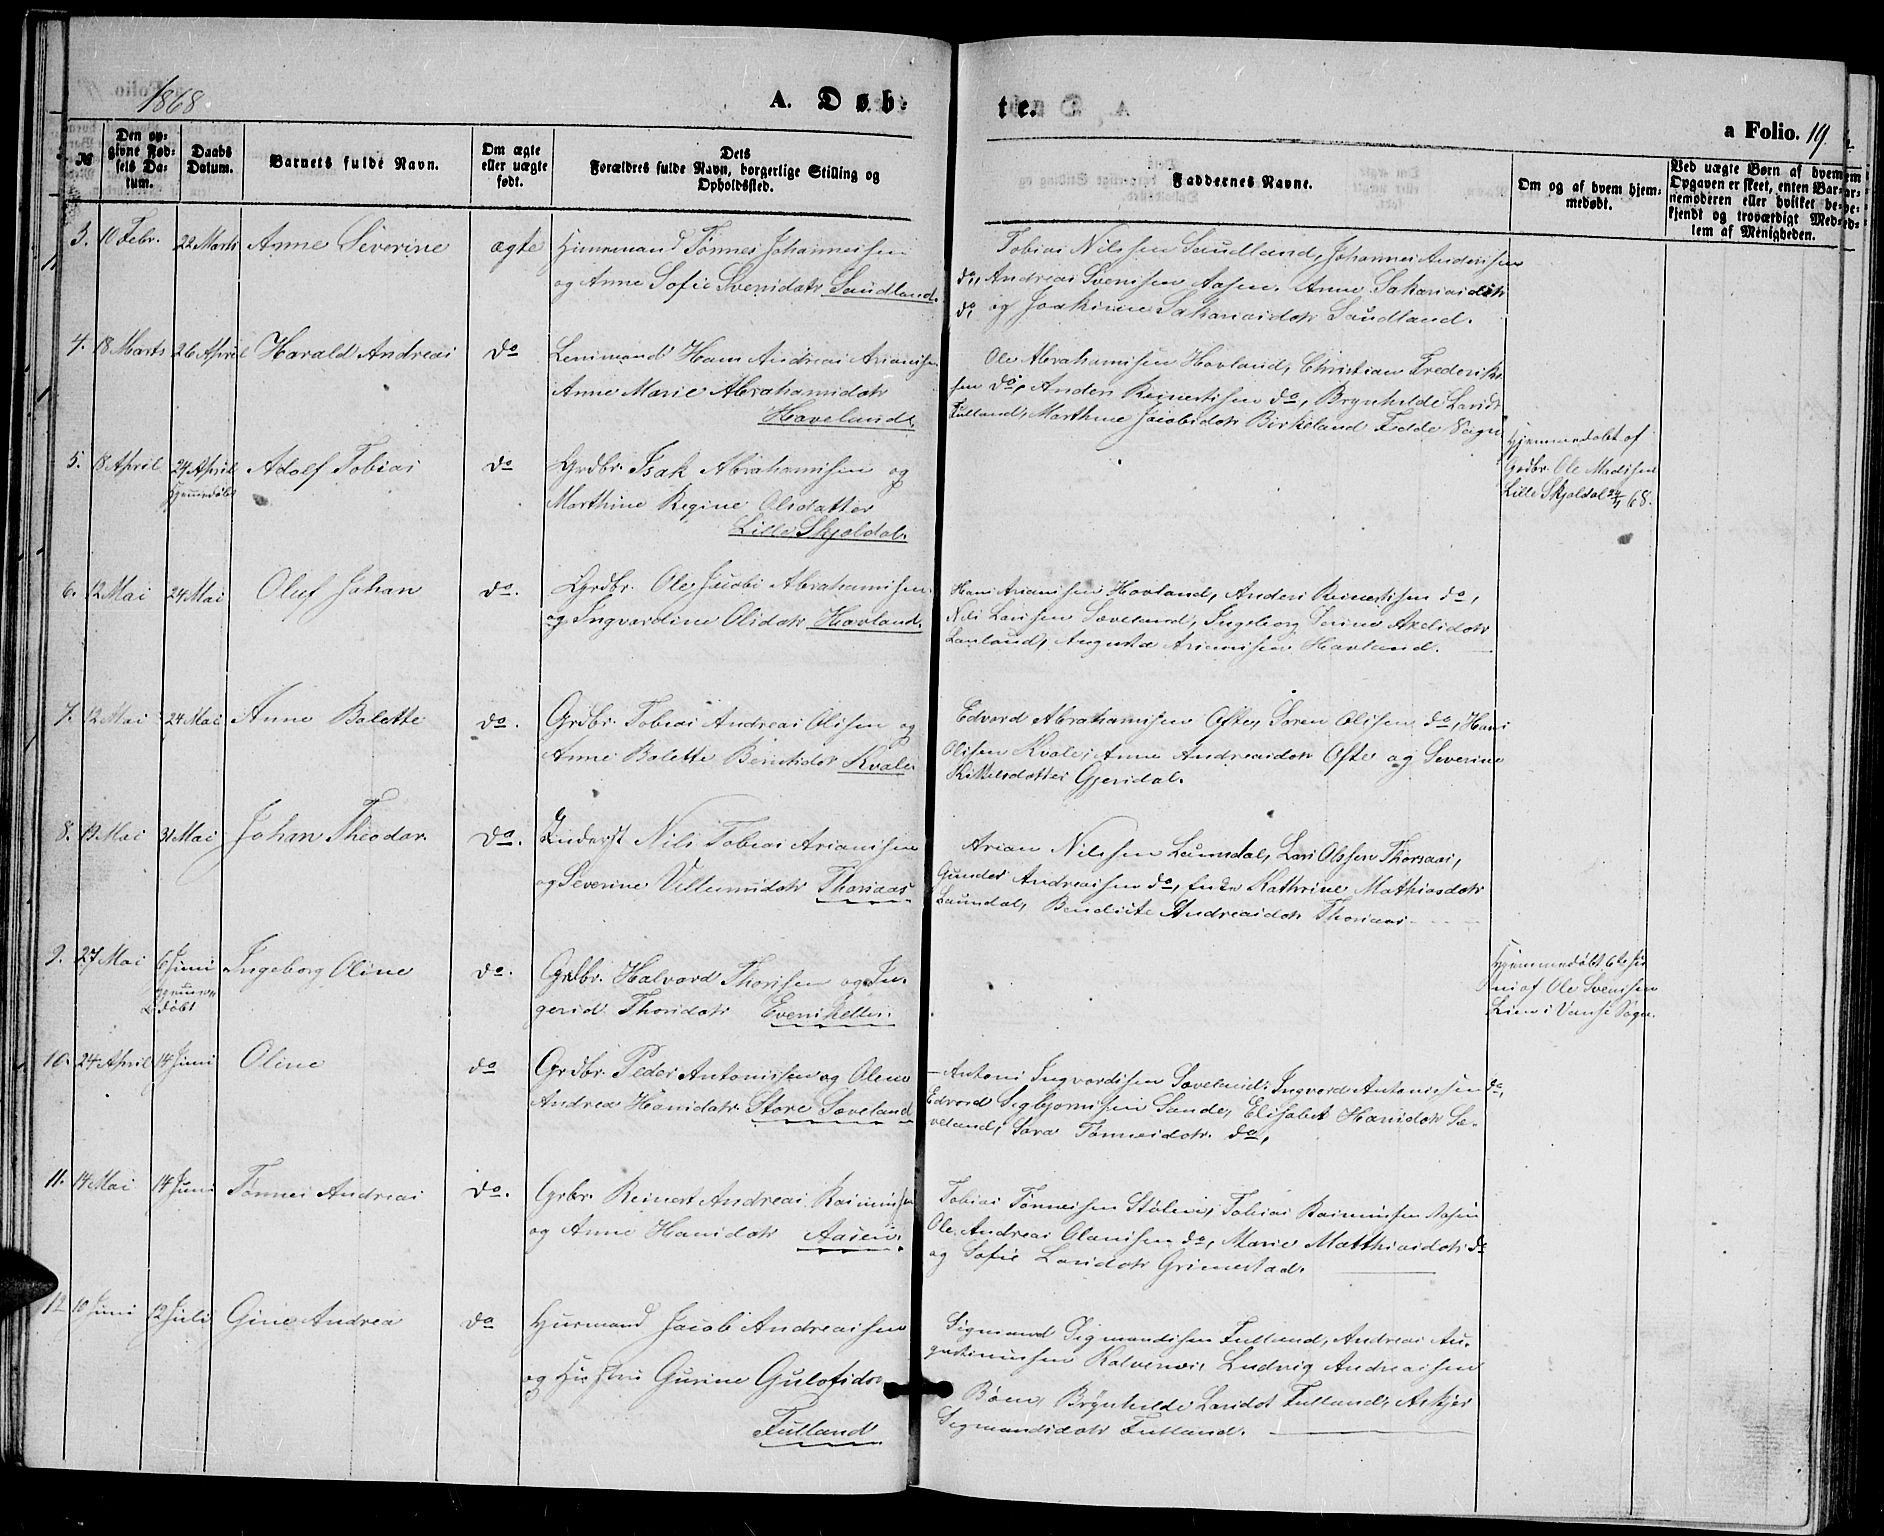 1868
A. Døb-
te.
a Folio. 19
№
Den op-
givne Fød-
sels Da-
tum.
Daabs
Datum.
Barnets fulde Navn.
Om ægte
eller uægte
født.
Dets
Forældres fulde Navn, borgerlige Stilling og
Opholdssted.
Faddernes Navne.
Om og af hvem hjem-
medøbt.
Ved uægte Børn af hvem
Opgaven er skeet, enten Bar-
nemoderen eller hvilket be-
kjendt og troværdigt Med-
lem af Menigheden.
3. 10 Febr. 22 Marts Anne Severine ægte
Huusmand Tønnes Johannessen
og Anne Sofie Svensdatr Saudland.
Tobias Nilssen Saudland, Johannes Anderssen
do, Andreas Svenssen Aasen. Anne Sakariasdatr
do, og Joakime Sakariasdatr Saudland.
4. 18 Marts 26 April Harald Andreas do
Leiumand Hans Andreas Arianssen
Anne Marie Abrahamsdatr
Haveland.
Ole Abrahamssen Hovland, Christian Frederiks-
sen do, Anders Reinertssen do, Brynhilde Larsdt
Fulland, Marthine Jacobsdatr Birkeland Fedde Sogn
5. 8 April 24 April Adolf Tobias do
Hjemmedøbt
Grdbr. Isak Abrahamssen og
Marthine Regine Olsdatter
Lille Skjoldal.
Hjemmedøbt af
Grdbr. Ole Madssen
Lille Skjoldal 24/4 68.
6. 12 Mai 24 Mai Oluf Johan do.
Grdbr. Ole Jacobs Abrahamssen
og Ingvardine Olsdatr Havland.
Hans Arianssen Hovland, Anders Reinertssen do,
Nils Larssen Sæveland, Ingeborg Serine Axelsdatr
Lauland, Augusta Arianssen Havland.
7. 12 Mai 24 Mai Anne Balette do.
Grdbr. Tobias Andreas Olssen og
Anne Balette Berntsdatr Kvale.
Edvard Abrahamssen Ofte, Søren Olssen do, Hans
Olssen Kvale, Anne Andreasdatr Ofte og Severine
Kittelsdatter Gjersdal.
8. 19 Mai 31 Mai Johan Theodor. do.
Inderst Nils Tobias Arianssen
og Severine Villumsdatr Thorsaas
Arian Nilssen Launsdal, Lars Olssen Thorsaas,
Gunder Andreassen do, Enke Kathrine Mathiasdatr
Launsdal, Bendicte Andreasdatr Thorsaas
9. 27 Mai 6 Juni Ingeborg Oline do.
Hjemme-
døbt
Grdbr. Halvord Thorssen og In-
gerid Thorsdatr Evenskelle.
Hjemmedøbt 6te Ju-
ni af Ole Svenssen
Lien i Vanse Sogn.
10. 24 April 14 Juni Oline do
Grdbr. Peder Antonissen og Olene
Andrea Hansdatr. Store Sæveland
Antoni Ingvordssen Sæveland, Ingvord Antonissen do,
Edvord Sigbjørnssen Sande, Elisabet Hansdatr Sæ-
veland, Sara Tønnesdatr. do,
11. 14 Mai 14 Juni Tønnes Andreas do.
Grbr. Reinert Andreas Rasmussen
og Anne Hansdatr Aasen.
Tobias Tønnessen Stølen, Tobias Rasmussen Aasen
Ole Andreas Olaussen do, Marie Matthiasdatr do
og Sofie Larsdatr Grimestad.
12 10 Juni 12 Juli Gine Andrea do
Husmand Jacob Andreassen
og Hustru Gurine Gulofsdr
Fulland
Sigmund Sigmundssen Fulland, Andreas Au-
gustinussen Kalvenes, Ludvig Andreassen
Bøen, Brynhilde Larsdot Fulland, Askjer
Sigmundsdatr Fulland.